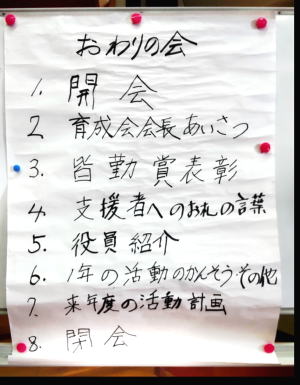 おわりの会
1. 開会
2. 育成会会長あいさつ
3. 皆勤賞表彰
4. 支援者へのお礼の言葉
5. 役員紹介
6. 1年の活動のかんそう その他
7. 来年度の活動計画
8. 閉会